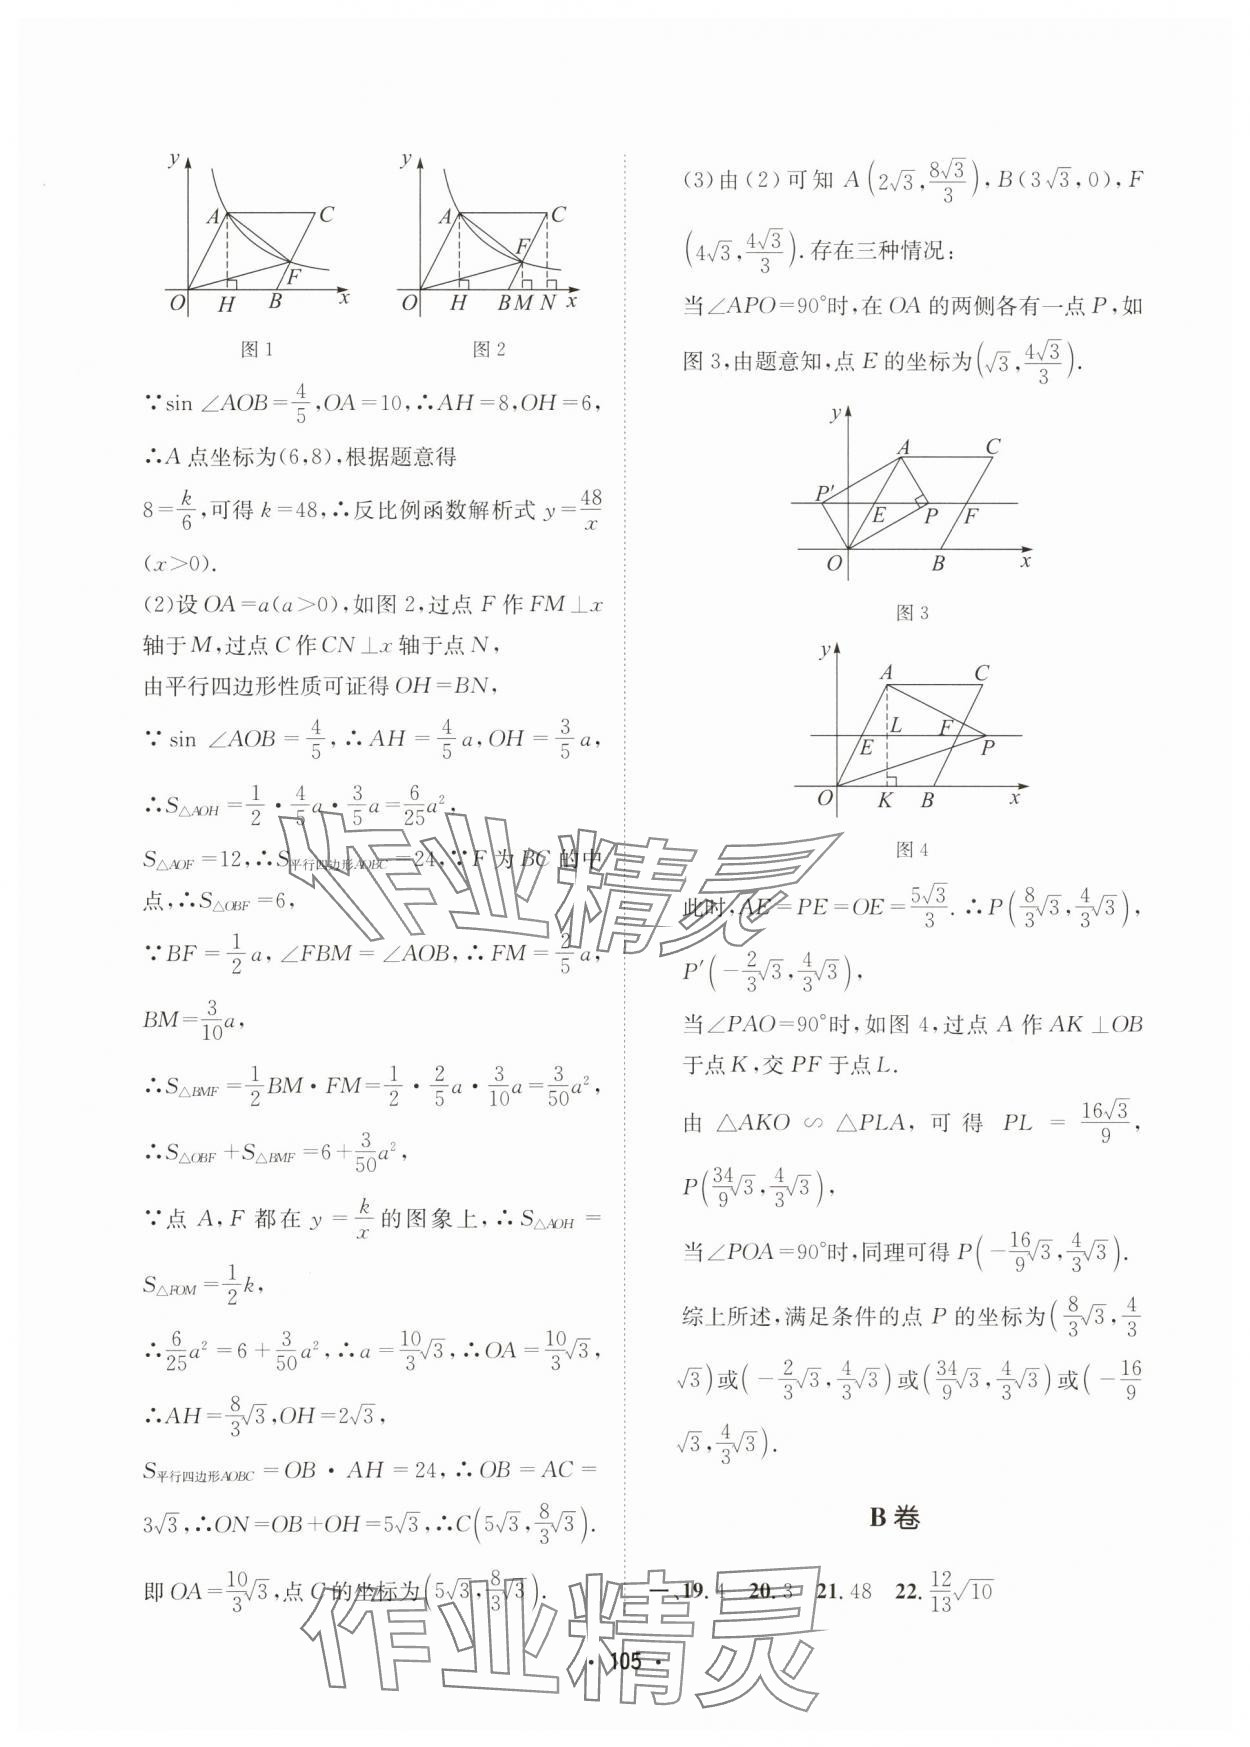 y
A
C
F
O
H
B
x
图1
y
A
C
F
O
H
B
M
N
x
图2
∵sin∠AOB=4/5,OA=10,∴AH=8,OH=6,
∴A点坐标为(6,8),根据题意得
8=k/6,可得k=48,∴反比例函数解析式y=48/x
(x>0).
(2)设OA=a(a>0),如图2,过点F作FM⊥x
轴于M,过点C作CN⊥x轴于点N,
由平行四边形性质可证得OH=BN,
∵sin∠AOB=4/5,∴AH=4/5a,OH=3/5a,
∴S△AOH=1/2·4/5a·3/5a=6/25a²,
S△AOF=12,∴S平行四边形AOBC=24,∵F为BC的中
点,∴S△OBF=6,
∵BF=1/2a,∠FBM=∠AOB,∴FM=2/5a,
BM=3/10a,
∴S△BMF=1/2BM·FM=1/2·2/5a·3/10a=3/50a²,
∴S△OBF+S△BMF=6+3/50a²,
∵点A,F都在y=k/x的图象上,∴S△AOH=
S△FOM=1/2k,
∴6/25a²=6+3/50a²,∴a=10/3√3,∴OA=10/3√3,
∴AH=8/3√3,OH=2√3,
S平行四边形AOBC=OB·AH=24,∴OB=AC=
3√3,∴ON=OB+OH=5√3,∴C(5√3,8/3√3).
即OA=10/3√3,点C的坐标为(5√3,8/3√3).
(3)由(2)可知A(2√3,8√3/3),B(3√3,0),F
(4√3,4√3/3).存在三种情况:
当∠APO=90°时,在OA的两侧各有一点P,如
图3,由题意知,点E的坐标为(√3,4√3/3).
y
A
C
P′
E
P
F
O
B
x
图3
y
A
C
L
F
E
P
O
K
B
x
图4
此时,AE=PE=OE=5√3/3.∴P(8/3√3,4/3√3),
P′(-2/3√3,4/3√3),
当∠PAO=90°时,如图4,过点A作AK⊥OB
于点K,交PF于点L.
由△AKO∽△PLA,可得PL=16√3/9,
P(34/9√3,4/3√3),
当∠POA=90°时,同理可得P(-16/9√3,4/3√3).
综上所述,满足条件的点P的坐标为(8/3√3,4/3
√3)或(-2/3√3,4/3√3)或(34/9√3,4/3√3)或(-16/9
√3,4/3√3).
B卷
一、19.4 20.3 21.48 22.12/13√10
·105·
作业精灵
作业精灵